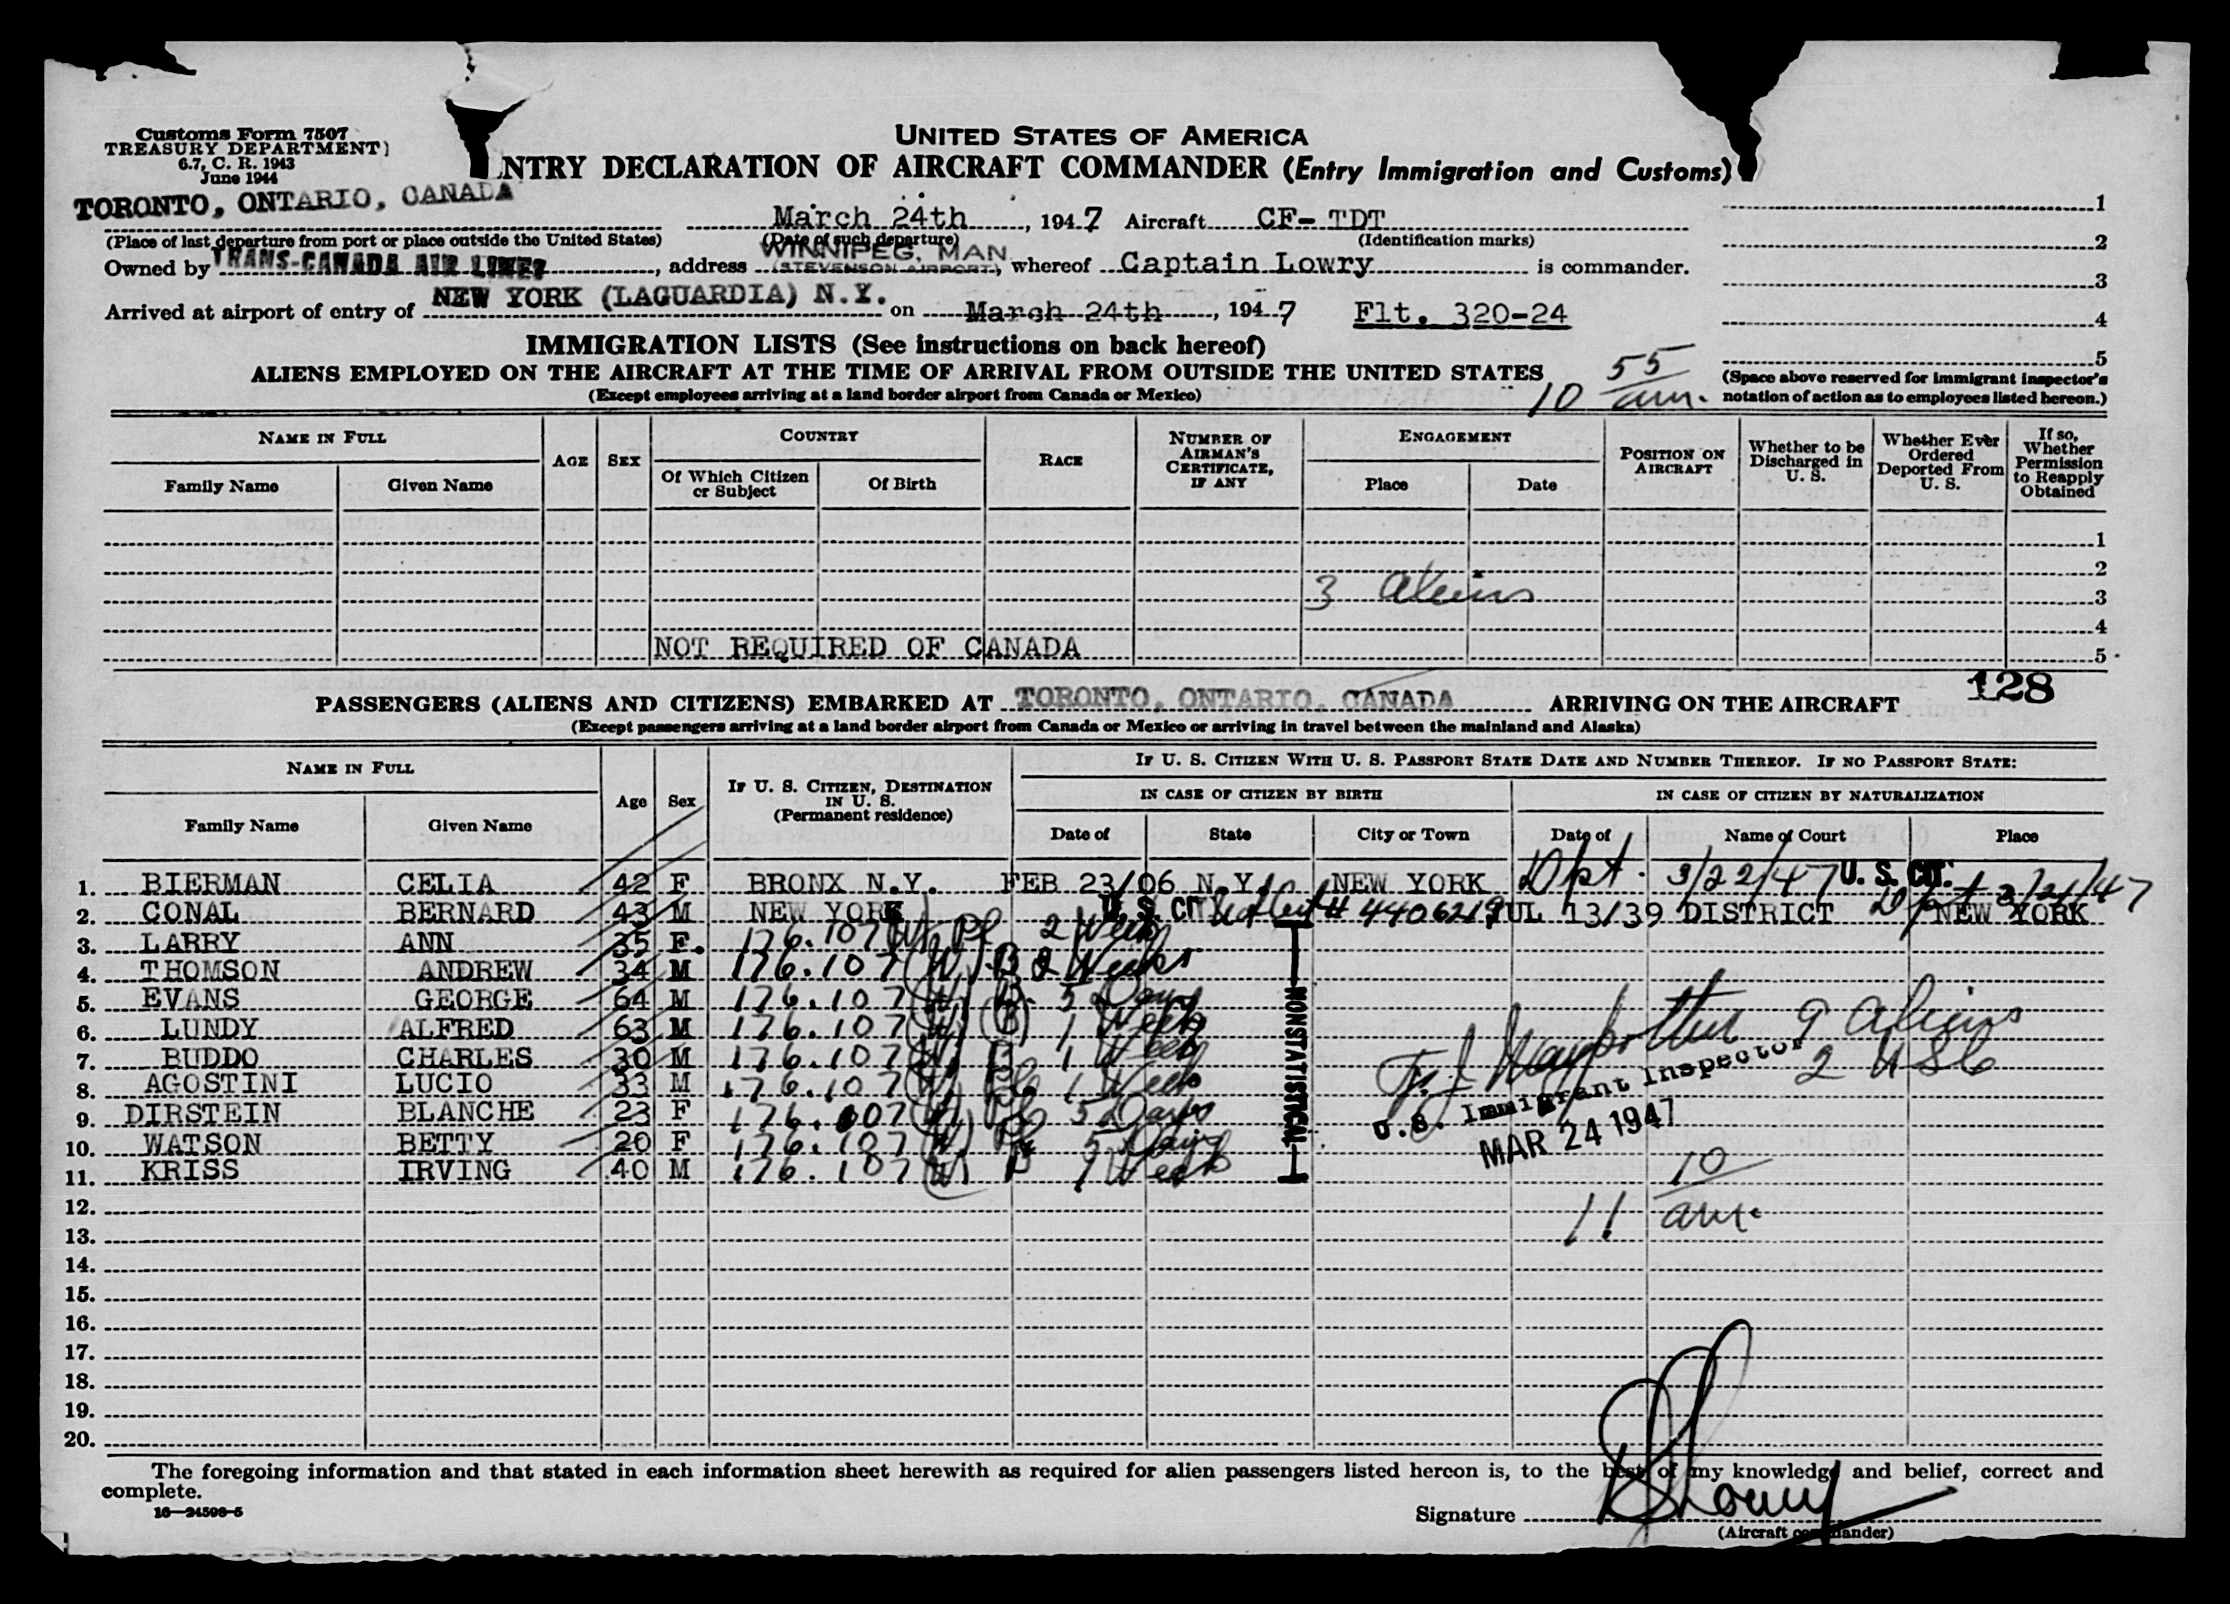 Customs Form 7507
TREASURY DEPARTMENT)
6.7, C. R. 1943
June 1944
UNITED STATES OF AMERICA
NTRY DECLARATION OF AIRCRAFT COMMANDER (Entry Immigration and Customs)
TORONTO, ONTARIO, CANADA
March 24th, 1947 Aircraft CF-TDT
(Place of last departure from port or place outside the United States) (Date of such departure) (Identification marks)
WINNIPEG, MAN
Owned by TRANS-CANADA AIR LINES, address (STEVENSON AIRPORT), whereof Captain Lowry is commander.
Arrived at airport of entry of NEW YORK (LAGUARDIA) N.Y. on March 24th, 1947 Flt. 320-24
1
2
3
4
5
(Space above reserved for immigrant inspector's notation of action as to employees listed hereon.)
IMMIGRATION LISTS (See instructions on back hereof)
ALIENS EMPLOYED ON THE AIRCRAFT AT THE TIME OF ARRIVAL FROM OUTSIDE THE UNITED STATES
(Except employees arriving at a land border airport from Canada or Mexico)
10 55 am.
NAME IN FULL AGE SEX COUNTRY RACE NUMBER OF AIRMAN'S CERTIFICATE, IF ANY ENGAGEMENT POSITION ON AIRCRAFT Whether to be Discharged in U. S. Whether Ever Ordered Deported From U. S. If so, Whether Permission to Reapply Obtained
Family Name Given Name Of Which Citizen or Subject Of Birth Place Date
1
2
3 Aliens 3
4
NOT REQUIRED OF CANADA 5
128
PASSENGERS (ALIENS AND CITIZENS) EMBARKED AT TORONTO, ONTARIO, CANADA ARRIVING ON THE AIRCRAFT
(Except passengers arriving at a land border airport from Canada or Mexico or arriving in travel between the mainland and Alaska)
NAME IN FULL Age Sex IF U. S. CITIZEN, DESTINATION IN U. S. (Permanent residence) IF U. S. CITIZEN WITH U. S. PASSPORT STATE DATE AND NUMBER THEREOF. IF NO PASSPORT STATE:
IN CASE OF CITIZEN BY BIRTH IN CASE OF CITIZEN BY NATURALIZATION
Family Name Given Name Date of State City or Town Date of Name of Court Place
1. BIERMAN CELIA 42 F BRONX N.Y. FEB 23/06 N.Y. NEW YORK Dpt. 3/22/47 U. S. CIT.
2. CONAL BERNARD 43 M NEW YORK U. S. CIT # 4406219 JUL 13/39 DISTRICT Dpt 3/21/47 NEW YORK
3. LARRY ANN 35 F. 176.107 (W) Pl 2 Weeks
4. THOMSON ANDREW 34 M 176.107 (W) B 2 Weeks
5. EVANS GEORGE 64 M 176.107 (W) B 5 Days
6. LUNDY ALFRED 63 M 176.107 (W) (B) 1 Week
7. BUDDO CHARLES 30 M 176.107 (W) B 1 Week
8. AGOSTINI LUCIO 33 M 176.107 (W) Pl 1 Week
9. DIRSTEIN BLANCHE 23 F 176.107 (W) Pl 5 Days
10. WATSON BETTY 20 F 176.107 (W) Pl 5 Days
11. KRISS IRVING 40 M 176.107 (W) B 1 Week
NONSTATISTICAL
9 Aliens
2 USC
U.S. Immigrant Inspector
MAR 24 1947
11 10 am.
12.
13.
14.
15.
16.
17.
18.
19.
20.
The foregoing information and that stated in each information sheet herewith as required for alien passengers listed hereon is, to the best of my knowledge and belief, correct and
complete.
16—24596-5
Signature Lowry
(Aircraft commander)